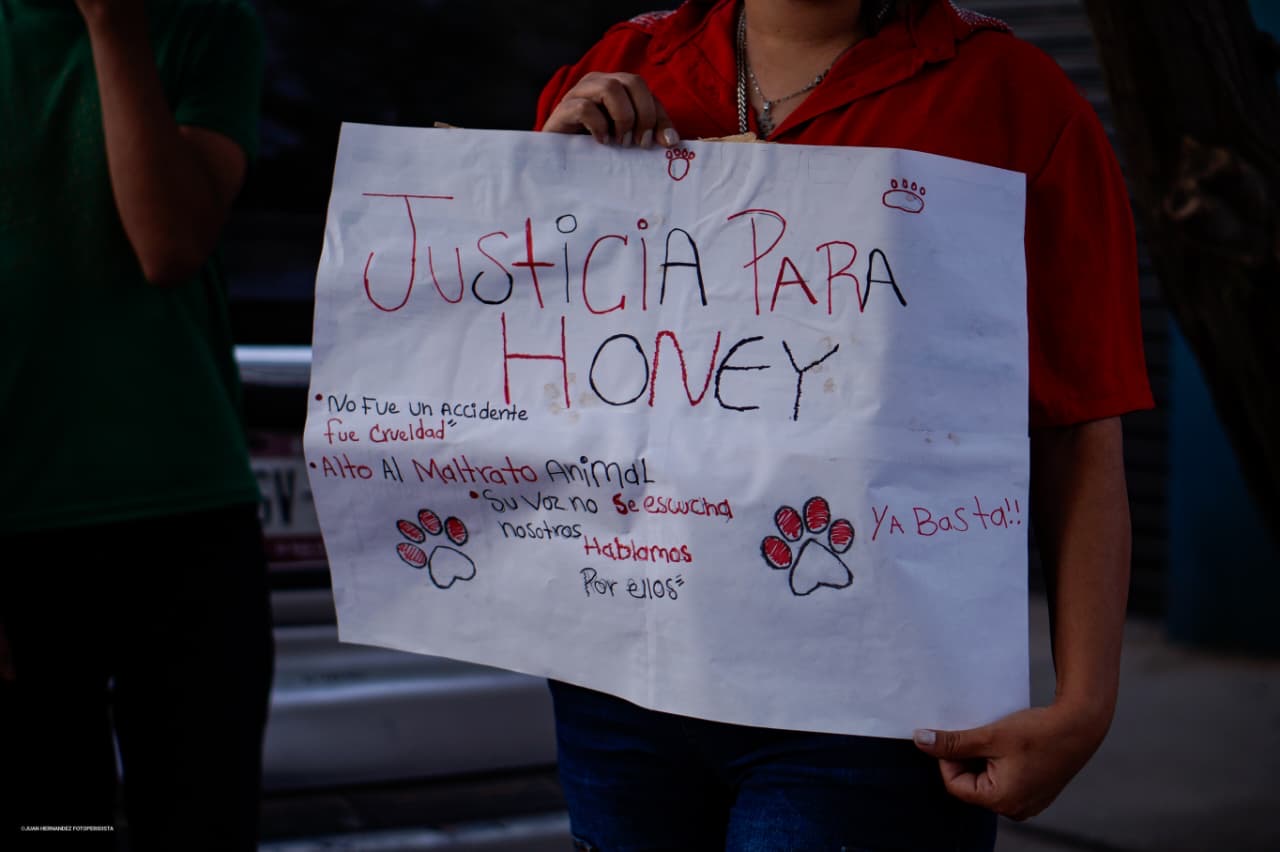 JusticiA PARA
HONEY
• No Fue un Accidente
fue Crueldad"
• Alto Al Maltrato AniMaL
• Su Voz no Se escucha
nosotros
Hablamos
Por ellos"
YA Basta!!
©JUAN HERNANDEZ FOTOPERIODISTA